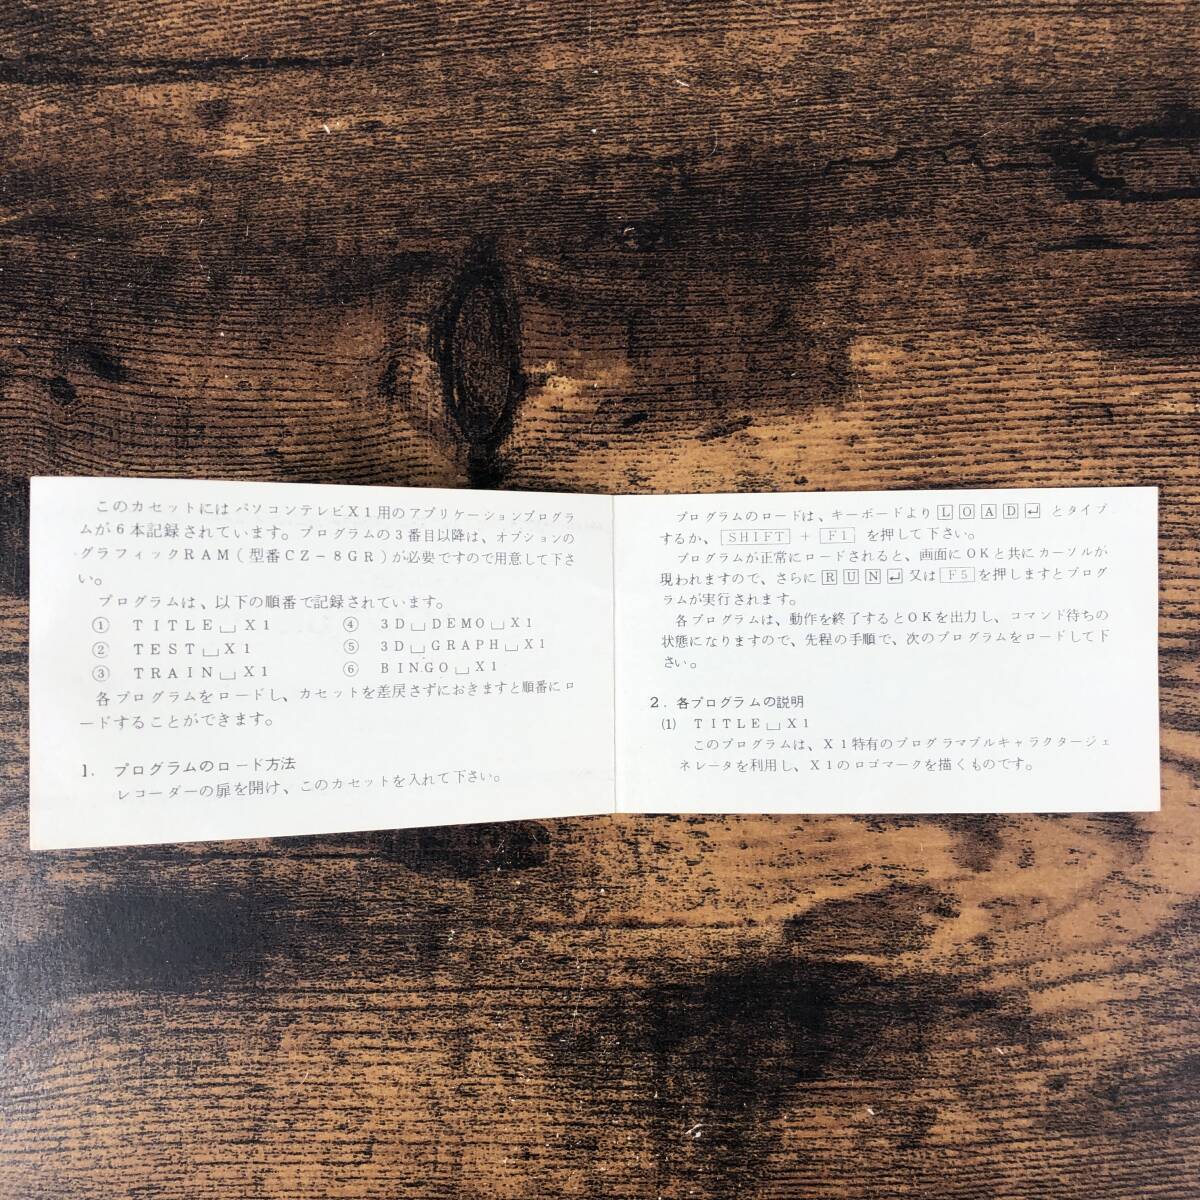 このカセットにはパソコンテレビX1用のアプリケーションプログラ
ムが6本記録されています。プログラムの3番目以降は、オプションの
グラフィックRAM(型番CZ-8GR)が必要ですので用意して下さ
い。
プログラムは、以下の順番で記録されています。
① TITLE␣X1 ④ 3D␣DEMO␣X1
② TEST␣X1 ⑤ 3D␣GRAPH␣X1
③ TRAIN␣X1 ⑥ BINGO␣X1
各プログラムをロードし、カセットを差戻さずにおきますと順番にロ
ードすることができます。
1. プログラムのロード方法
レコーダーの扉を開け、このカセットを入れて下さい。
プログラムのロードは、キーボードより L O A D ↵ とタイプ
するか、 SHIFT + F1 を押して下さい。
プログラムが正常にロードされると、画面にOKと共にカーソルが
現われますので、さらに R U N ↵ 又は F5 を押しますとプログ
ラムが実行されます。
各プログラムは、動作を終了するとOKを出力し、コマンド待ちの
状態になりますので、先程の手順で、次のプログラムをロードして下
さい。
2. 各プログラムの説明
(1) TITLE␣X1
このプログラムは、X1特有のプログラマブルキャラクタージェ
ネレータを利用し、X1のロゴマークを描くものです。